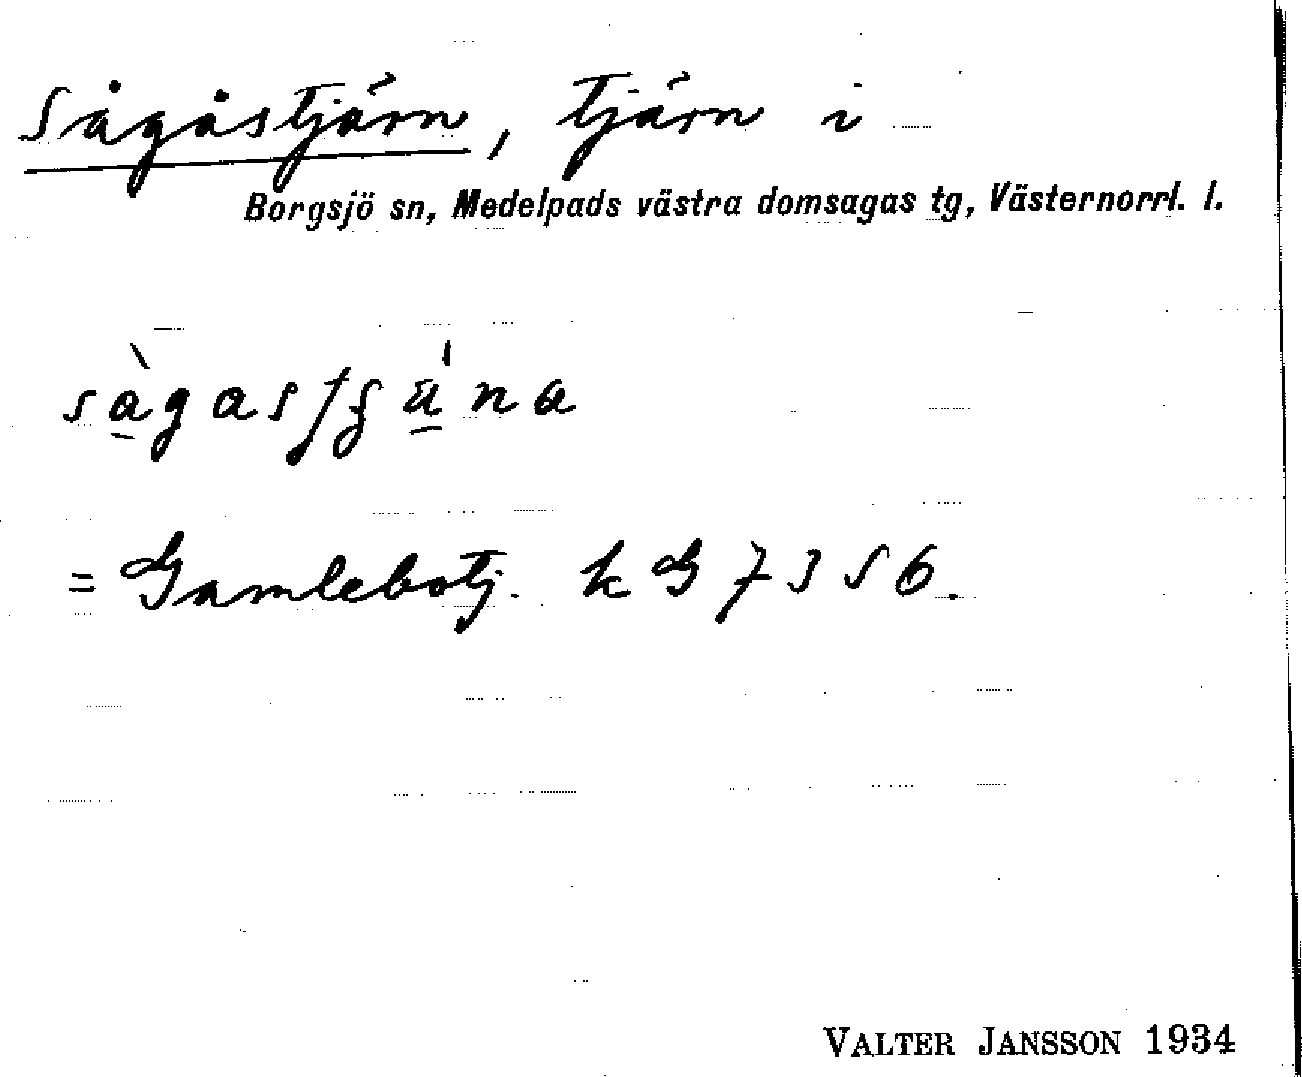 Sågåstjärn, tjärn i
Borgsjö sn, Medelpads västra domsagas tg, Västernorrl. l.
= Gamlebotj. k G 7356.
VALTER JANSSON 1934